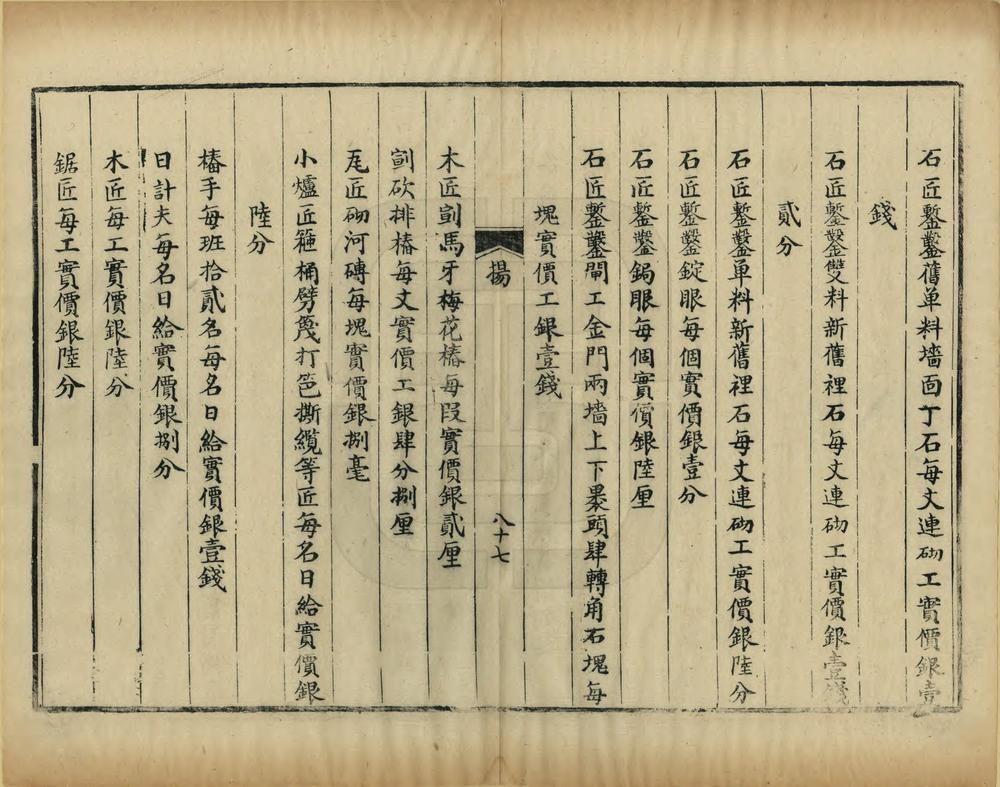 石匠鏨鑿舊单料墻面丁石每丈連砌工實價銀壹
錢
石匠鏨鑿雙料新舊裡石每丈連砌工實價銀壹錢
貳分
石匠鏨鑿单料新舊裡石每丈連砌工實價銀陸分
石匠鏨鑿錠眼每個實價銀壹分
石匠鏨鑿鋦眼每個實價銀陸厘
石匠鏨鑿閘工金門兩墻上下裹頭肆轉角石塊每
塊實價工銀壹錢
揚
八十七
木匠劄馬牙梅花樁每段實價銀貳厘
劄砍排樁每丈實價工銀肆分捌厘
瓦匠砌河磚每塊實價銀捌毫
小爐匠箍桶劈篾打笆撕纜等匠每名日給實價銀
陸分
樁手每班拾貳名每名日給實價銀壹錢
日計夫每名日給實價銀捌分
木匠每工實價銀陸分
鋸匠每工實價銀陸分